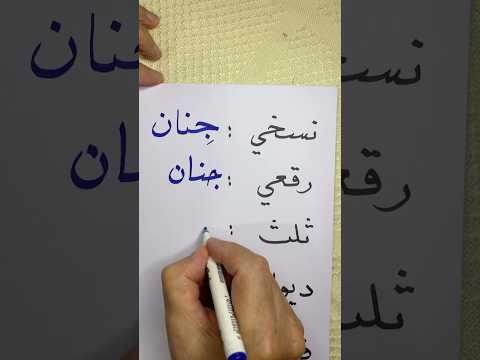 نسخي : جِنان
رقعي : جنان
ثلث :